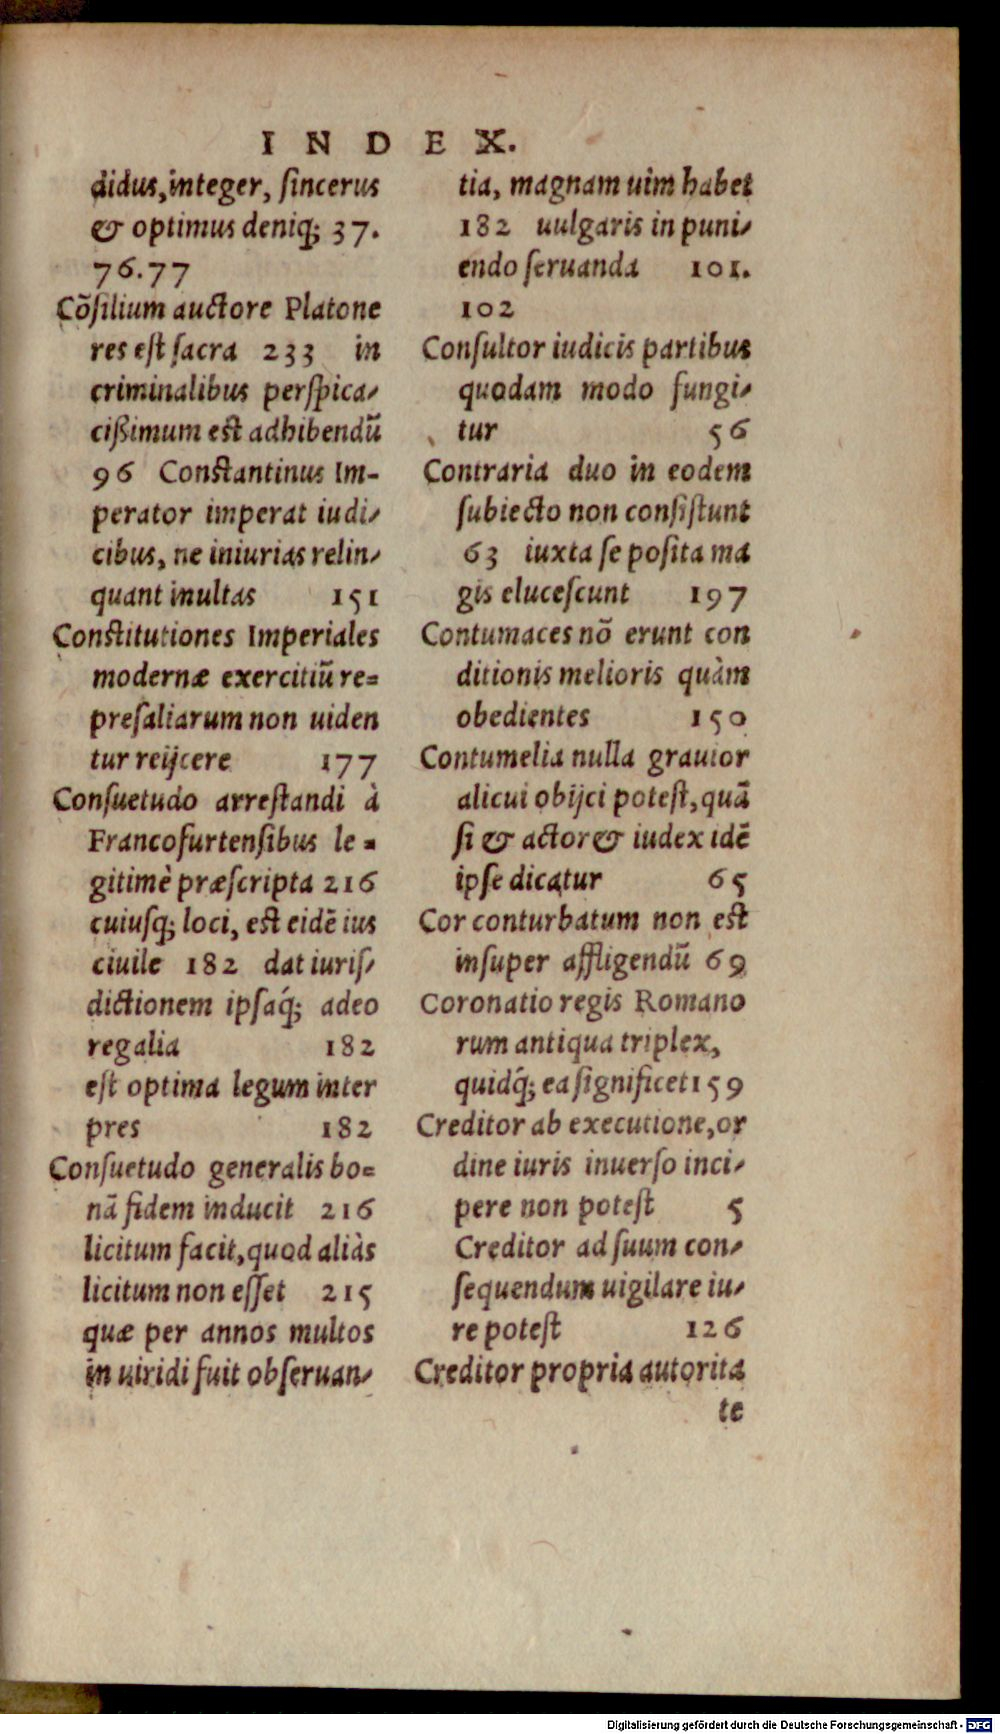 INDEX.
didus, integer, sincerus
& optimus deniq; 37.
76.77
Cōsilium auctore Platone
res est sacra 233 in
criminalibus perspica-
cißimum est adhibendū
96 Constantinus Im-
perator imperat iudi-
cibus, ne iniurias relin-
quant inultas 151
Constitutiones Imperiales
modernæ exercitiū re=
presaliarum non uiden
tur reijcere 177
Consuetudo arrestandi à
Francofurtensibus le=
gitimè præscripta 216
cuiusq; loci, est eidē ius
ciuile 182 dat iuris-
dictionem ipsaq́; adeo
regalia 182
est optima legum inter
pres 182
Consuetudo generalis bo=
nā fidem inducit 216
licitum facit, quod aliàs
licitum non esset 215
quæ per annos multos
in uiridi fuit obseruan-
tia, magnam uim habet
182 uulgaris in puni-
endo seruanda 101.
102
Consultor iudicis partibus
quodam modo fungi-
tur 56
Contraria duo in eodem
subiecto non consistunt
63 iuxta se posita ma
gis elucescunt 197
Contumaces nō erunt con
ditionis melioris quàm
obedientes 150
Contumelia nulla grauior
alicui obijci potest, quā
si & actor & iudex idē
ipse dicatur 65
Cor conturbatum non est
insuper affligendū 69
Coronatio regis Romano
rum antiqua triplex,
quidq́; ea significet 159
Creditor ab executione, or
dine iuris inuerso inci-
pere non potest 5
Creditor ad suum con-
sequendum uigilare iu-
re potest 126
Creditor propria autorita
te
Digitalisierung gefördert durch die Deutsche Forschungsgemeinschaft - DFG